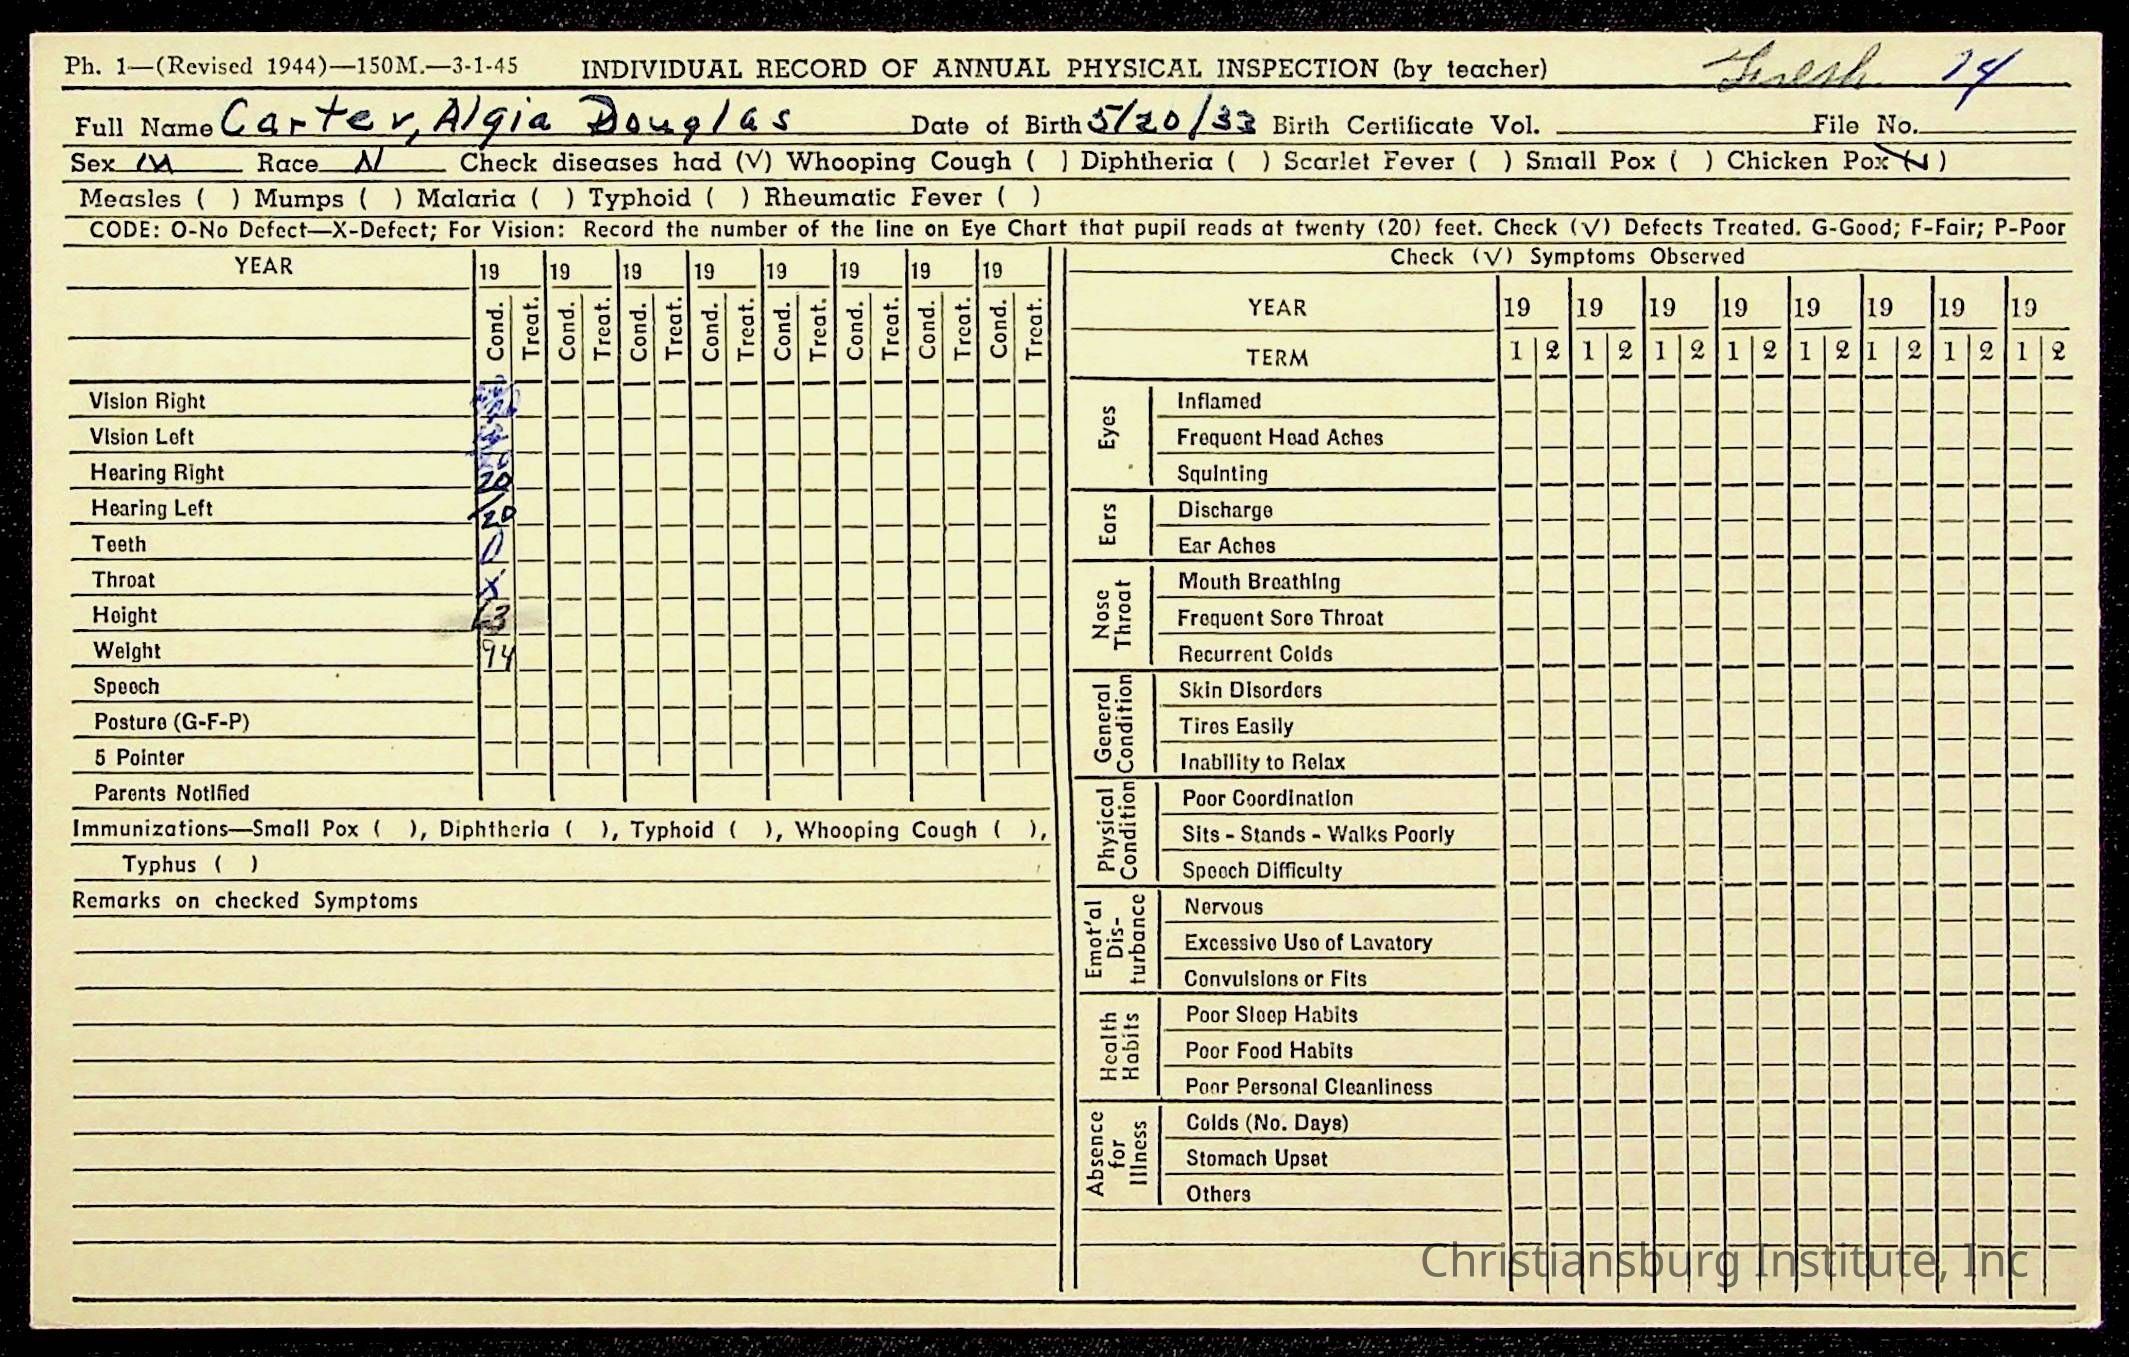 Ph. 1—(Revised 1944)—150M.—3-1-45 INDIVIDUAL RECORD OF ANNUAL PHYSICAL INSPECTION (by teacher) Fresh 14
Full Name Carter, Algia Douglas Date of Birth 5/20/33 Birth Certificate Vol. File No.
Sex M Race N Check diseases had (√) Whooping Cough ( ) Diphtheria ( ) Scarlet Fever ( ) Small Pox ( ) Chicken Pox (√)
Measles ( ) Mumps ( ) Malaria ( ) Typhoid ( ) Rheumatic Fever ( )
CODE: O-No Defect—X-Defect; For Vision: Record the number of the line on Eye Chart that pupil reads at twenty (20) feet. Check (√) Defects Treated. G-Good; F-Fair; P-Poor
YEAR 19 19 19 19 19 19 19 19
Cond. Treat. Cond. Treat. Cond. Treat. Cond. Treat. Cond. Treat. Cond. Treat. Cond. Treat. Cond. Treat.
Vision Right
Vision Left
Hearing Right 20
Hearing Left /20
Teeth 0
Throat x
Height
Weight 94
Speech
Posture (G-F-P)
5 Pointer
Parents Notified
Immunizations—Small Pox ( ), Diphtheria ( ), Typhoid ( ), Whooping Cough ( ),
Typhus ( )
Remarks on checked Symptoms
Check (√) Symptoms Observed
YEAR 19 19 19 19 19 19 19 19
TERM 1 2 1 2 1 2 1 2 1 2 1 2 1 2 1 2
Eyes
Inflamed
Frequent Head Aches
Squinting
Ears
Discharge
Ear Aches
Nose Throat
Mouth Breathing
Frequent Sore Throat
Recurrent Colds
General Condition
Skin Disorders
Tires Easily
Inability to Relax
Physical Condition
Poor Coordination
Sits - Stands - Walks Poorly
Speech Difficulty
Emot'al Dis-turbance
Nervous
Excessive Use of Lavatory
Convulsions or Fits
Health Habits
Poor Sleep Habits
Poor Food Habits
Poor Personal Cleanliness
Absence for Illness
Colds (No. Days)
Stomach Upset
Others
Christiansburg Institute, Inc